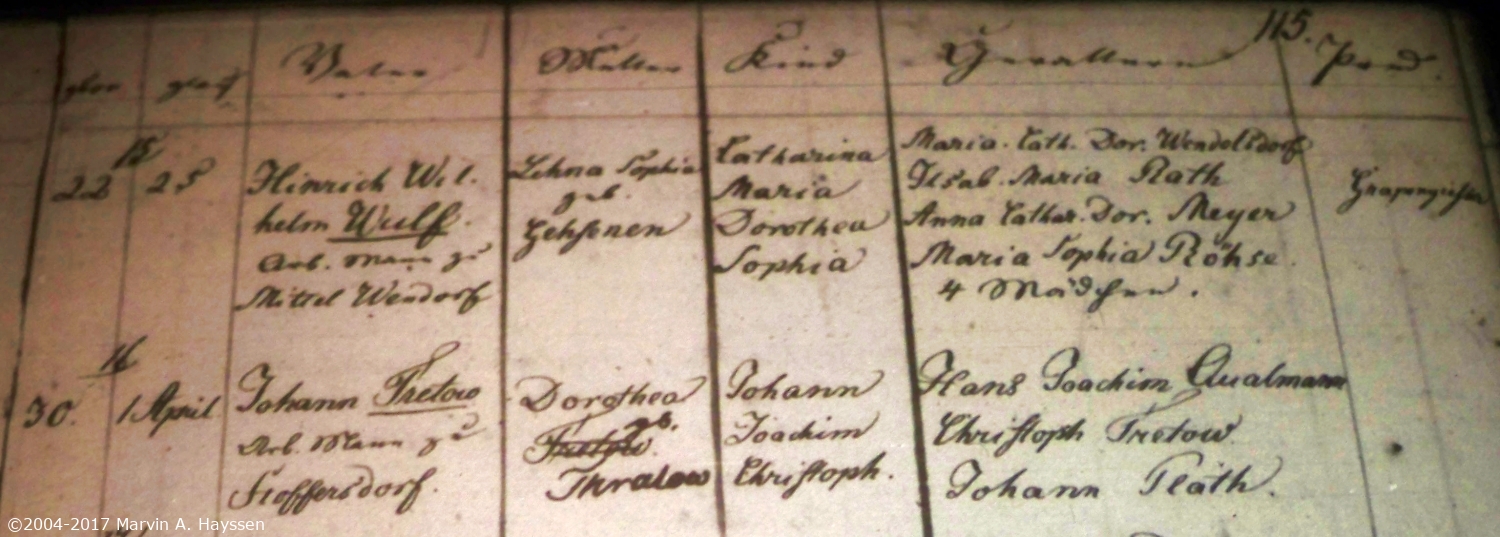 115.
gebor getauft Vater Mutter Kind Gevattern Pred.
15
22 25 Hinrich Wil. Lehna Sophia Catharina Maria. Cath. Dor. Wendelsdorf
helm Wulf. geb. Maria Ilsab. Maria Plath
Arb. Mann zu Gehsenen Dorothea Anna Cathar. Dor. Meyer
Mittel Wendorf Sophia Maria Sophia Röhse.
4 Mädchen.
16
30. 1 April Johann Tretow Dorothea Johann Hans Joachim Qualmann
Arb. Mann zu geb. Tretow. Joachim Christoph Tretow
Stoffersdorf. Thralow Christoph. Johann Plath.
©2004-2017 Marvin A. Hayssen